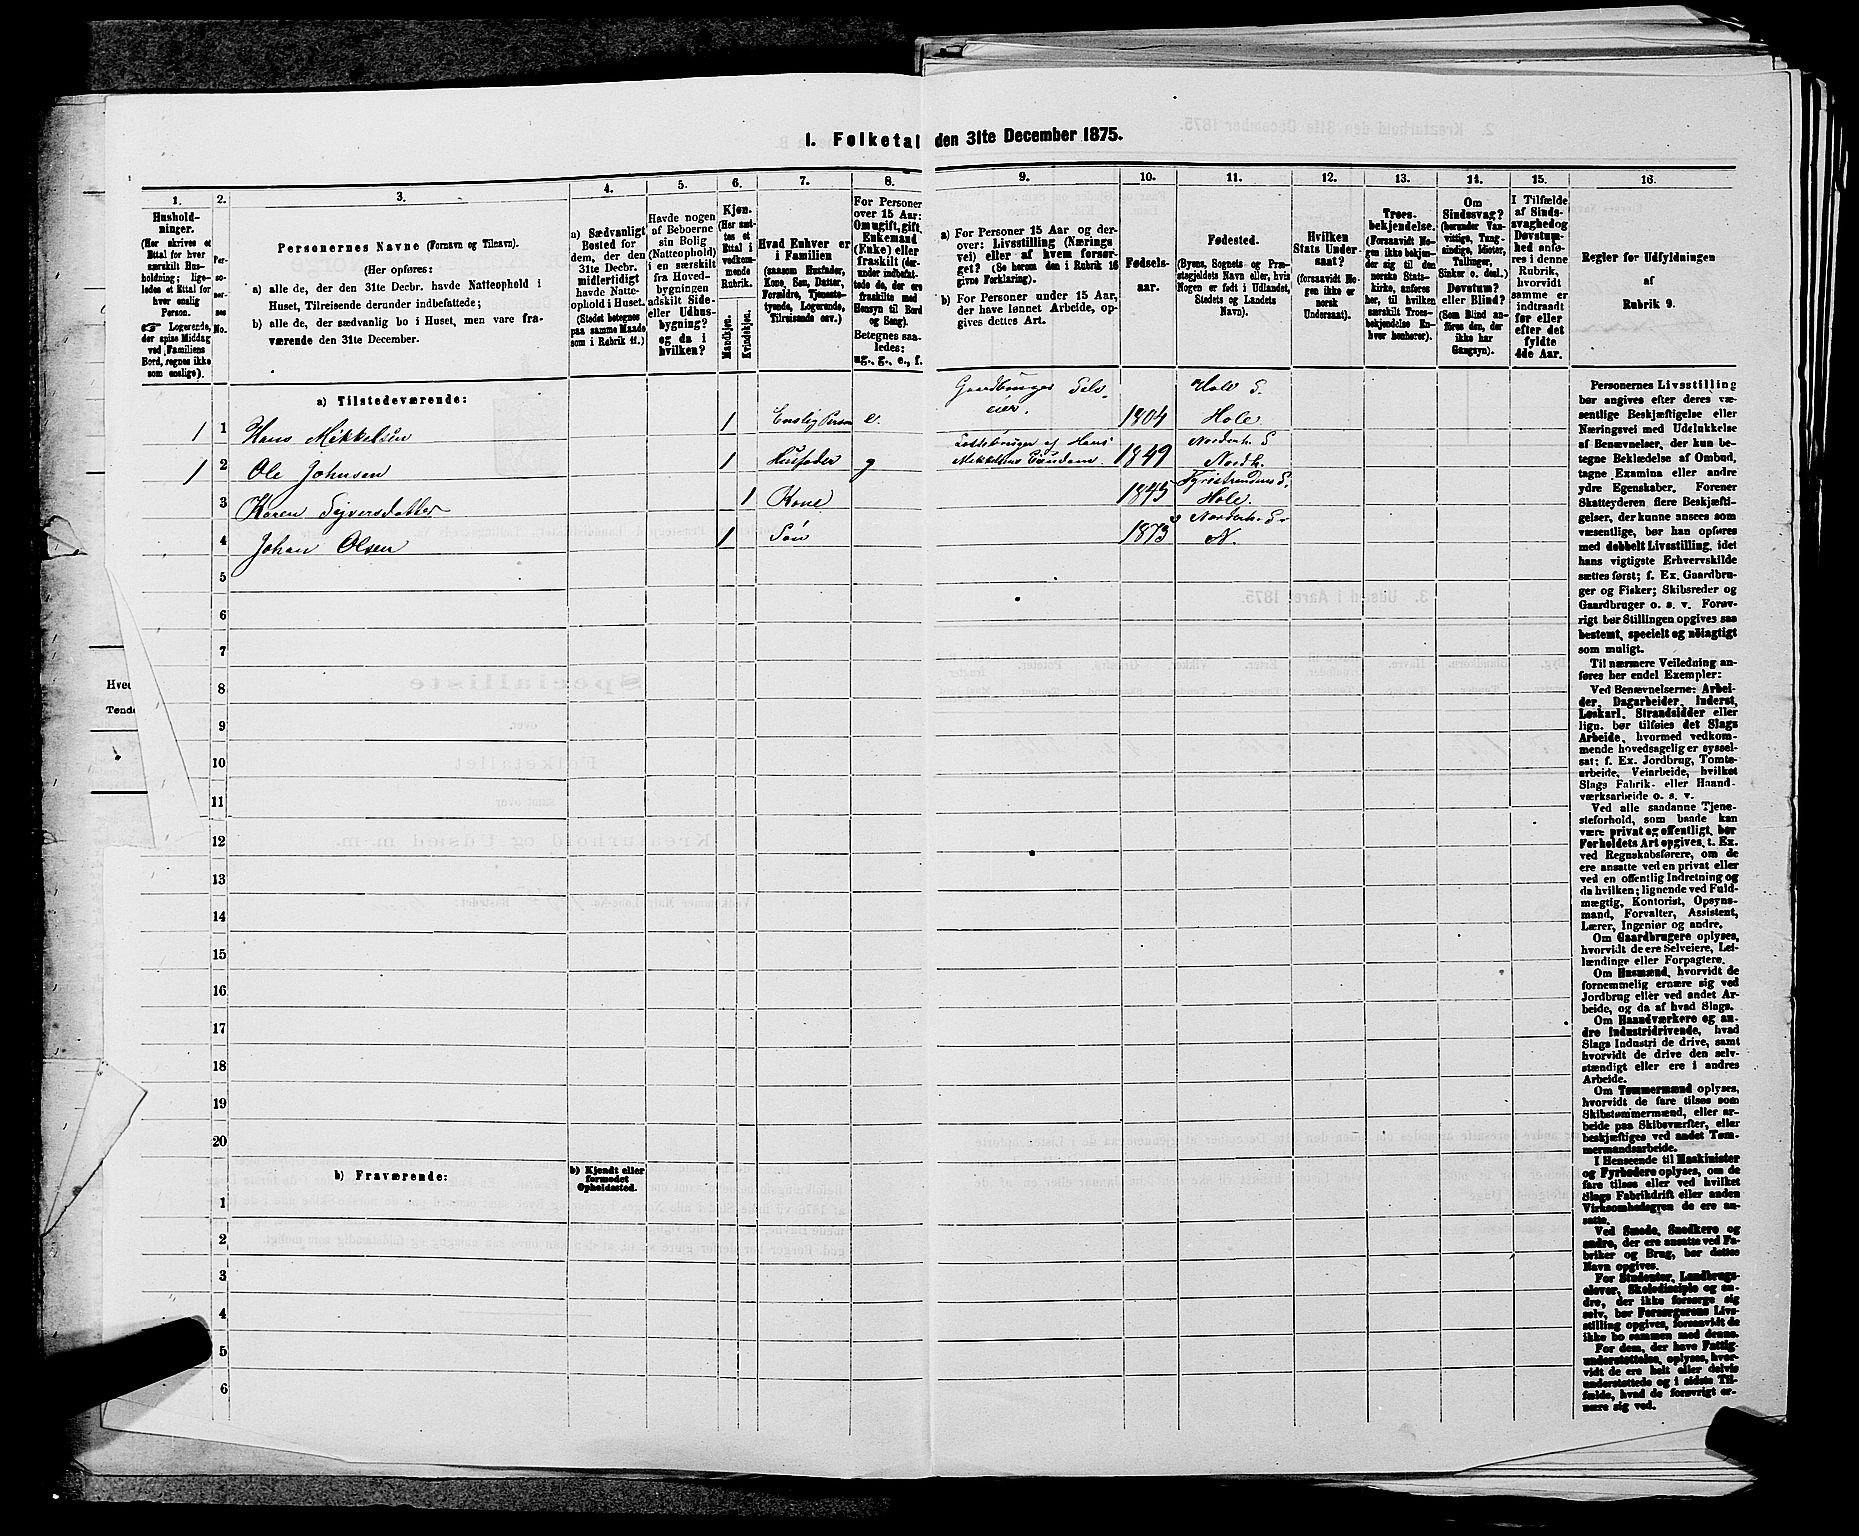 1. Folketal den 31te December 1875.
1.
Hushold-
ninger.
(Her skrives et
Ettal for hver
særskilt Hus-
holdning; lige-
ledes et Ettal for
hver enslig
Person.
☞ Logerende,
der spise Middag
ved Familiens
Bord, regnes ikke
som enslige).
2.
Per-
so-
ner-
nes
No.
3.
Personernes Navne (Fornavn og Tilnavn).
(Her opføres:
a) alle de, der den 31te Decbr. havde Natteophold i
Huset, Tilreisende derunder indbefattede;
b) alle de, der sædvanlig bo i Huset, men vare fra-
værende den 31te December.
4.
a) Sædvanligt
Bosted for
dem, der den
31te Decbr.
midlertidigt
havde Natte-
ophold i Huset.
(Stedet betegnes
paa samme Maade
som i Rubrik 11.)
5.
Havde nogen
af Beboerne
sin Bolig
(Natteophold)
i en særskilt
fra Hoved-
bygningen
adskilt Side-
eller Udhus-
bygning?
og da i
hvilken?
6.
Kjøn.
(Her sæt-
tes et
Ettal i
vedkom-
mende
Rubrik.
Mandkjøn.
Kvindekjøn.
7.
Hvad Enhver er
i Familien
(saasom Husfader,
Kone, Søn, Datter,
Forældre, Tjeneste-
tyende, Logerende,
Tilreisende osv.)
8.
For Personer
over 15 Aar:
Om ugift, gift,
Enkemand
(Enke) eller
fraskilt (der-
under indbefat-
tede de, der ere
fraskilte med
Hensyn til Bord
og Seng).
Betegnes saa-
ledes:
ug., g., e., f.
9.
a) For Personer 15 Aar og der-
over: Livsstilling (Nærings-
vei) eller af hvem forsør-
get? (Se herom den i Rubrik 16
givne Forklaring).
b) For Personer under 15 Aar,
der have lønnet Arbeide, op-
gives dettes Art.
10.
Fødsels-
aar.
11.
Fødested.
(Byens, Sognets og Præ-
stegjeldets Navn eller, hvis
Nogen er født i Udlandet,
Stedets og Landets
Navn).
12.
Hvilken
Stats Under-
saat?
(forsaavidt No-
gen ikke er
norsk
Undersaat).
13.
Troes-
bekjendelse.
(Forsaavidt No-
gen ikke bekjen-
der sig til den
norske Stats-
kirke, anføres
her, til hvilken
særskilt Troes-
bekjendelse En-
hver henhører).
14.
Om
Sindssvag?
(herunder Van-
vittige, Tung-
sindige, Idioter,
Tullinger,
Sinker o. desl.)
Døvstum?
eller Blind?
(Som Blind an-
føres den, der
ikke har
Gangsyn).
15.
I Tilfælde
af Sinds-
svaghed og
Døvstum-
hed anfø-
res i denne
Rubrik,
hvorvidt
samme er
indtraadt
før eller
efter det
fyldte
4de Aar.
16.
Regler for Udfyldningen
af
Rubrik 9.
a) Tilstedeværende:
1 1 Hans Mikkelsen 1 Enslig Person e. Gaardbruger Selv-
eier. 1804 Hole S.
Hole
1 2 Ole Johnsen 1 Husfader g Mikkelsens Eiendom. 1849 Norderh. S
Nordh.
3 Karen Sejversdatter 1 Kone 1845 Tyristrandens S.
Hole.
4 Johan Olsen 1 Søn 1873 Norderh. S.
N.
5
6
7
8
9
10
11
12
13
14
15
16
17
18
19
20
b) Fraværende:
b) Kjendt eller
formodet
Opholdssted.
1
2
3
4
5
6
Personernes Livsstilling
bør angives efter deres væ-
sentlige Beskjæftigelse eller
Næringsvei med Udelukkelse
af Benævnelser, der kun be-
tegne Beklædelse af Ombud,
tagne Examina eller andre
ydre Egenskaber. Forener
Skatteyderen flere Beskjæfti-
gelser, der kunne ansees som
væsentlige, bør han opføres
med dobbelt Livsstilling, idet
hans vigtigste Erhvervskilde
sættes først; f. Ex. Gaardbru-
ger og Fisker; Skibsreder og
Gaardbruger o. s. v. Forøv-
rigt bør Stillingen opgives saa
bestemt, specielt og nøiagtigt
som muligt.
Til nærmere Veiledning an-
føres her endel Exempler:
Ved Benævnelserne: Arbei-
der, Dagarbeider, Inderst,
Løskarl, Strandsidder eller
lign. bør tilføies det Slags
Arbeide, hvormed vedkom-
mende hovedsagelig er syssel-
sat; f. Ex. Jordbrug, Tomte-
arbeide, Veiarbeide, hvilket
Slags Fabrik- eller Haand-
værksarbeide o. s. v.
Ved alle saadanne Tjene-
steforhold, som baade kan
være privat og offentligt, bør
Forholdets Art opgives, t. Ex.
ved Regnskabsførere, om de
ere ansatte ved en privat eller
ved en offentlig Indretning og
da hvilken; lignende ved Fuld-
mægtig, Kontorist, Opsyns-
mand, Forvalter, Assistent,
Lærer, Ingeniør og andre.
Om Gaardbrugere oplyses,
hvorvidt de ere Selveiere, Lei-
lændinge eller Forpagtere.
Om Husmænd, hvorvidt de
fornemmelig ernære sig ved
Jordbrug eller ved andet Ar-
beide, og da af hvad Slags.
Om Haandværkere og an-
dre Industridrivende, hvad
Slags Industri de drive, samt
hvorvidt de drive den selv-
stændigt eller ere i andres
Arbeide.
Om Tømmermænd oplyses,
hvorvidt de fare tilsøs som
Skibstømmermænd, eller ar-
beide paa Skibsværfter, eller
beskjæftiges ved andet Tøm-
mermandsarbeide.
I Henseende til Maskinister
og Fyrbødere oplyses, om de
fare tilsøs eller ved hvilket
Slags Fabrikdrift eller anden
Virksomhedsgren de ere an-
satte.
Ved Smede, Snedkere og
andre, der ere ansatte ved Fa-
briker og Brug, bør dettes
Navn opgives.
For Studenter, Landbrugs-
elever, Skoledisciple og an-
dre, der ikke forsørge sig
selv, bør Forsørgerens Livs-
stilling opgives, forsaavidt de
ikke bo sammen med denne.
For dem, der have Fattig-
understøttelse, oplyses, hvor-
vidt de ere helt eller delvis
understøttede og i sidste Til-
fælde, hvad de forøvrigt er-
nære sig ved.
Hved
Tønde